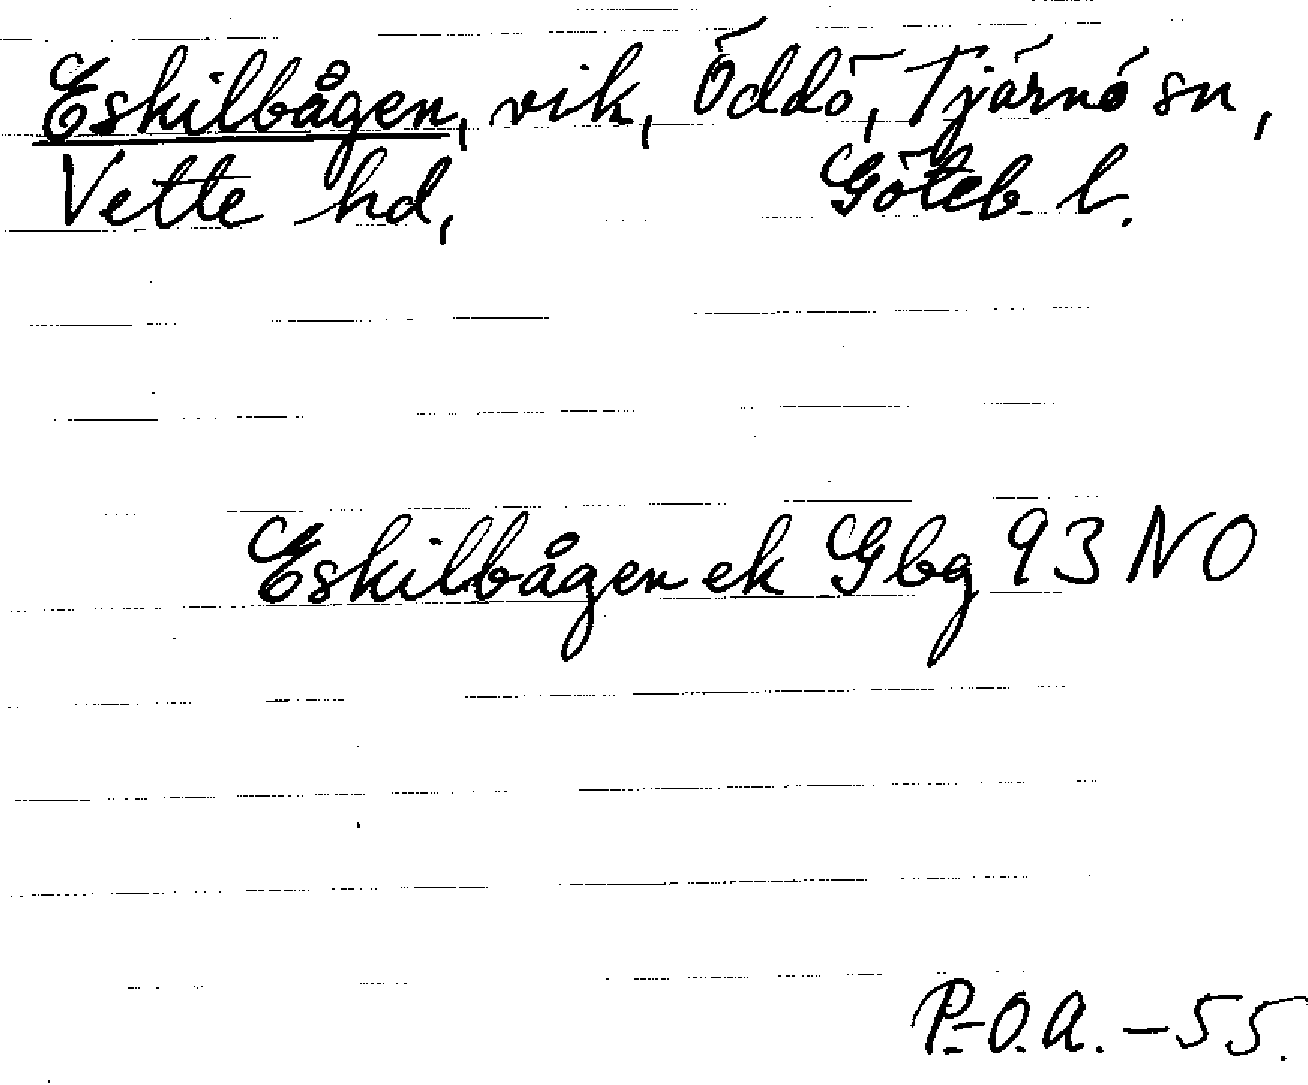 Eskilbågen, vik, Öddö, Tjärnö sn,
Vette hd, Göteb. l.
Eskilbågen ek Gbg 93 NO
P.-O.A. -55.